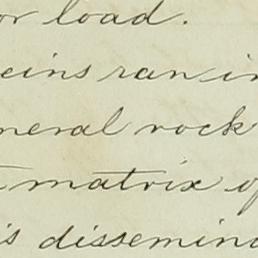 or load.
eins ran in
neral rock
matrix of
is dissemina